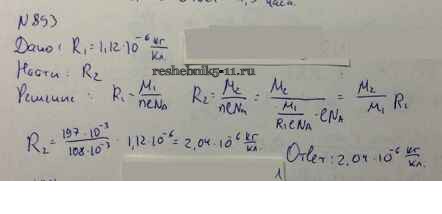 N 893
Дано: R₁ = 1,12·10⁻⁶ кг/кл.
Найти: R₂
reshebnik5-11.ru
Решение: R₁ = M₁/(neNA) R₂ = M₂/(neNA) = M₂/(M₁/(R₁eNA)·eNA) = M₂/M₁ R₁
R₂ = (197·10⁻³)/(108·10⁻³) · 1,12·10⁻⁶ = 2,04·10⁻⁶ кг/кл. Ответ: 2,04·10⁻⁶ кг/кл.